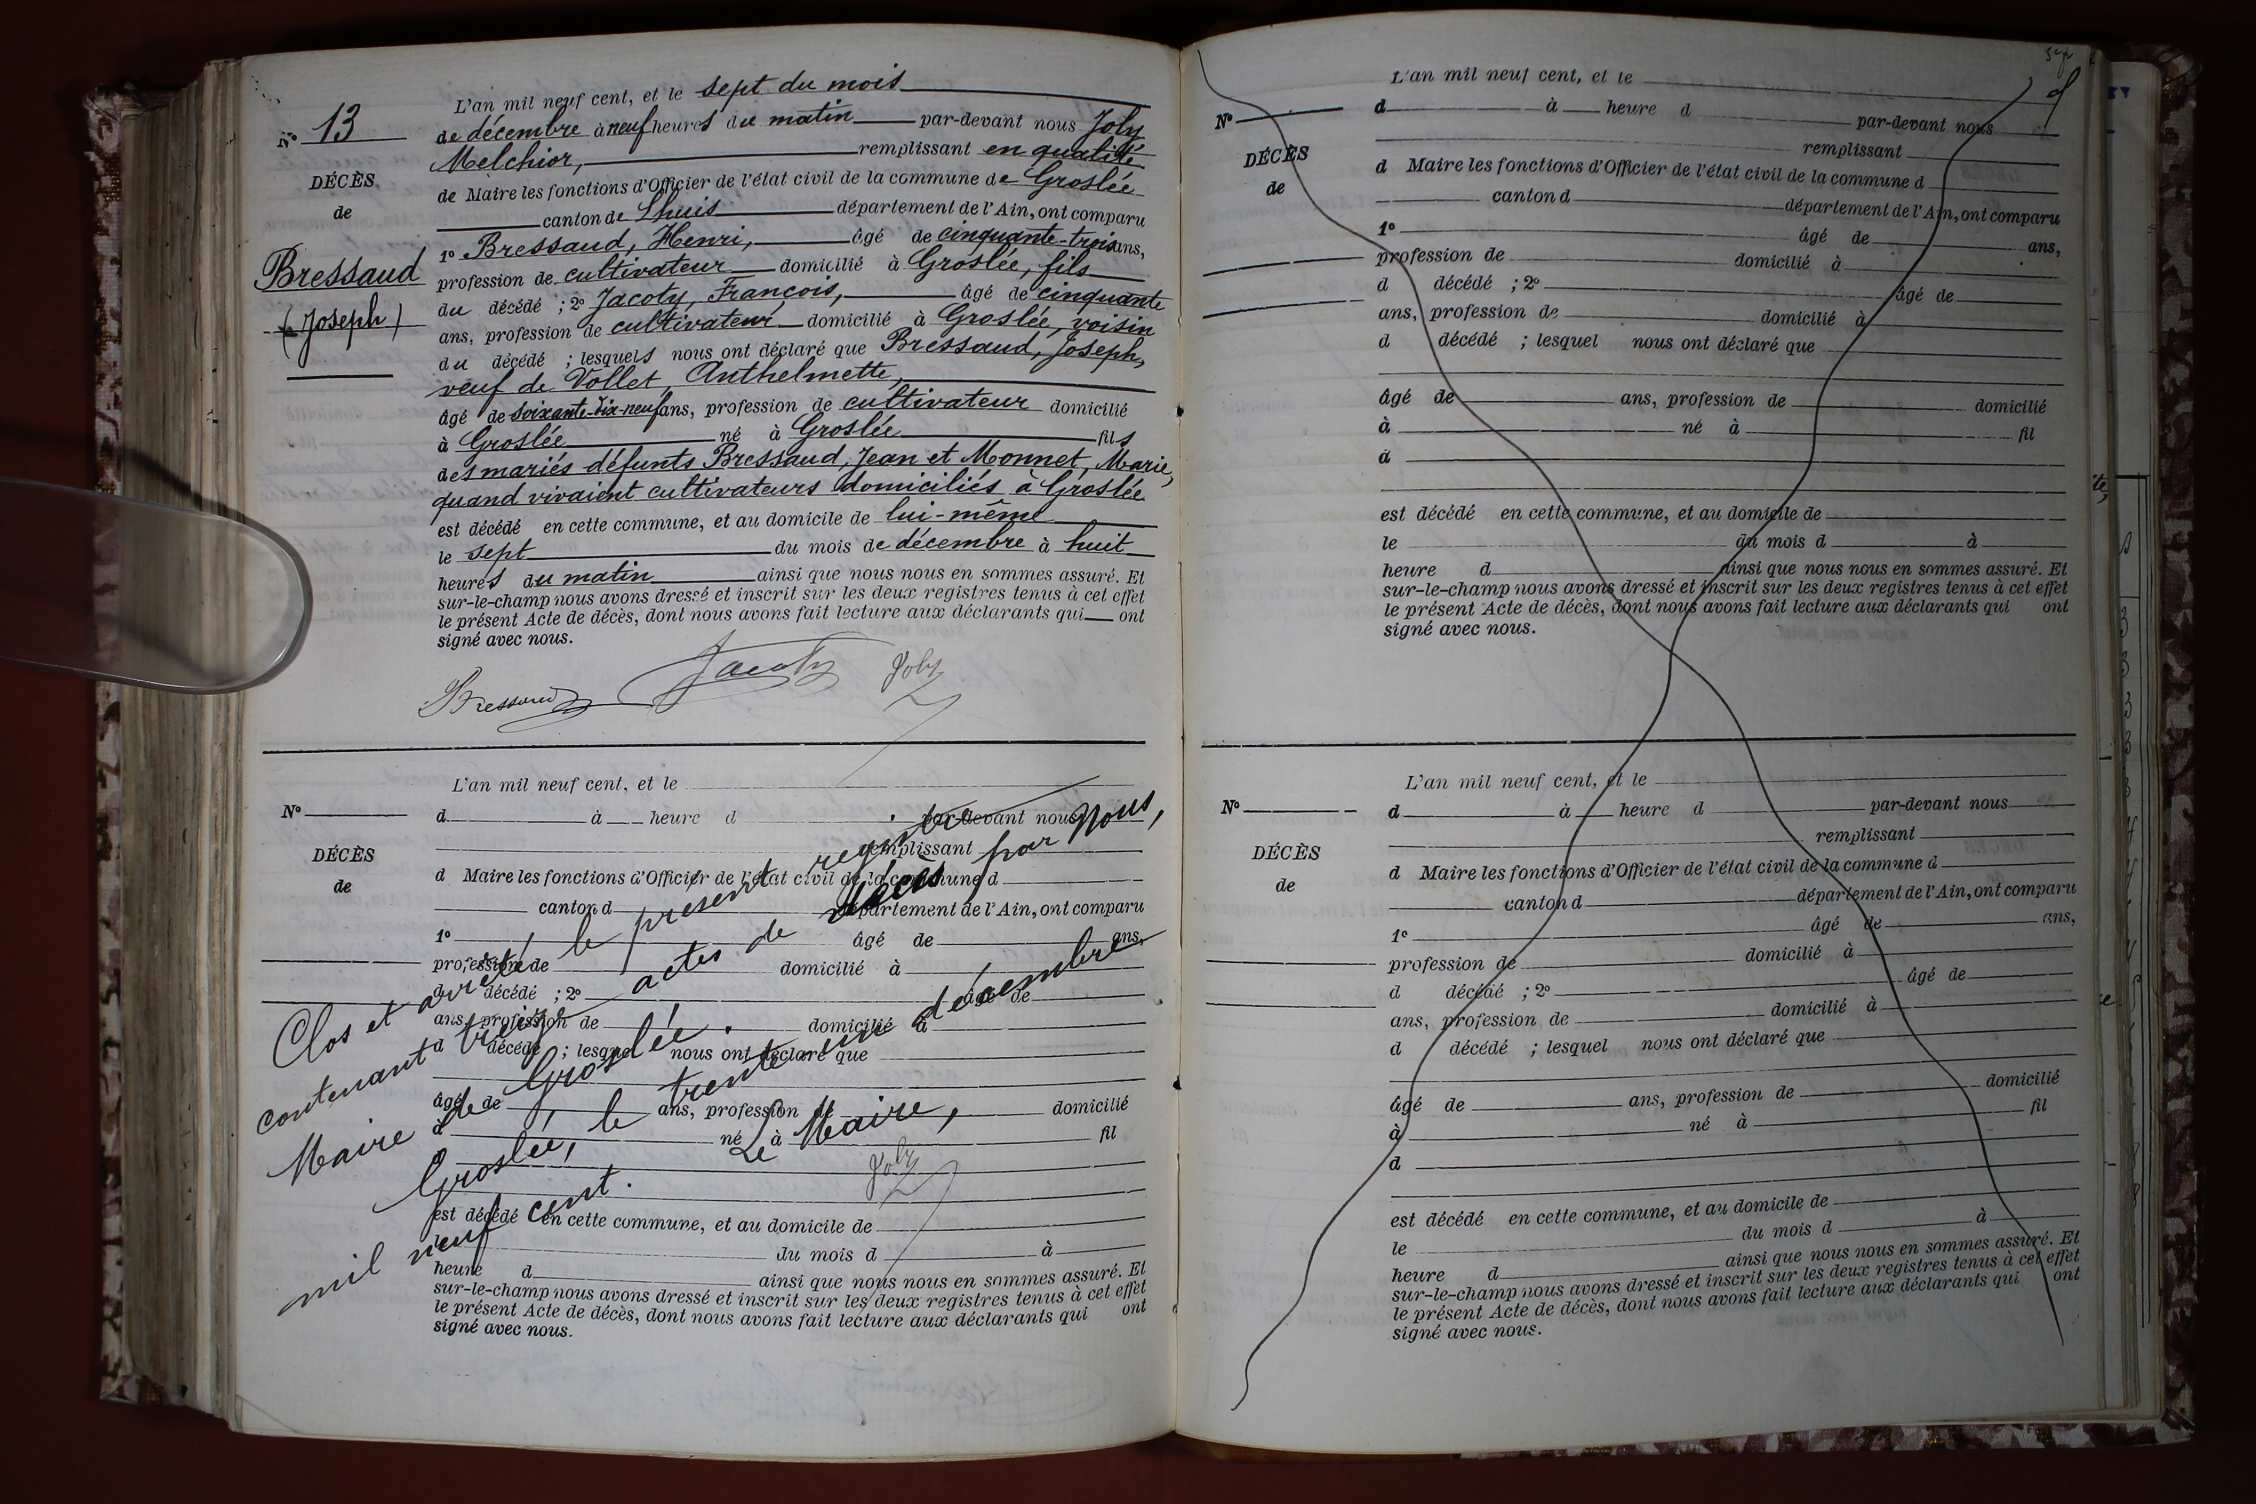 L'an mil neuf cent, et le sept du mois
N° 13
de décembre à neuf heures du matin par-devant nous Joly
Melchior, remplissant en qualité
DÉCÈS
de Maire les fonctions d'Officier de l'état civil de la commune de Groslée
de
canton de Lhuis département de l'Ain, ont comparu
1° Bressaud, Henri, âgé de cinquante-trois ans,
Bressaud
profession de cultivateur domicilié à Groslée, fils
du décédé ; 2° Jacoty, François, âgé de cinquante
(Joseph)
ans, profession de cultivateur domicilié à Groslée, voisin
du décédé ; lesquels nous ont déclaré que Bressaud, Joseph,
veuf de Vollet, Anthelmette,
âgé de soixante-dix-neuf ans, profession de cultivateur domicilié
à Groslée né à Groslée fils
des mariés défunts Bressaud, Jean et Monnet, Marie,
quand vivaient cultivateurs domiciliés à Groslée
est décédé en cette commune, et au domicile de lui-même
le sept du mois de décembre à huit
heures du matin ainsi que nous nous en sommes assuré. Et
sur-le-champ nous avons dressé et inscrit sur les deux registres tenus à cet effet
le présent Acte de décès, dont nous avons fait lecture aux déclarants qui ont
signé avec nous.
Bressaud Jacoty Joly
L'an mil neuf cent, et le
N°
d à heure d par-devant nous
remplissant
DÉCÈS
d Maire les fonctions d'Officier de l'état civil de la commune d
de
canton d département de l'Ain, ont comparu
1° âgé de ans,
profession de domicilié à
d décédé ; 2° âgé de
ans, profession de domicilié à
d décédé ; lesquel nous ont déclaré que
âgé de ans, profession de domicilié
à né à fil
d
est décédé en cette commune, et au domicile de
le du mois d à
heure d ainsi que nous nous en sommes assuré. Et
sur-le-champ nous avons dressé et inscrit sur les deux registres tenus à cet effet
le présent Acte de décès, dont nous avons fait lecture aux déclarants qui ont
signé avec nous.
Clos et arrêté le présent registre
contenant treize actes de décès par Nous,
Maire de Groslée.
Groslée, le trente une décembre
mil neuf cent.
Le Maire,
Joly
L'an mil neuf cent, et le
N°
d à heure d par-devant nous
remplissant
DÉCÈS
d Maire les fonctions d'Officier de l'état civil de la commune d
de
canton d département de l'Ain, ont comparu
1° âgé de ans,
profession de domicilié à
d décédé ; 2° âgé de
ans, profession de domicilié à
d décédé ; lesquel nous ont déclaré que
âgé de ans, profession de domicilié
à né à fil
d
est décédé en cette commune, et au domicile de
le du mois d à
heure d ainsi que nous nous en sommes assuré. Et
sur-le-champ nous avons dressé et inscrit sur les deux registres tenus à cet effet
le présent Acte de décès, dont nous avons fait lecture aux déclarants qui ont
signé avec nous.
L'an mil neuf cent, et le
N°
d à heure d par-devant nous
remplissant
DÉCÈS
d Maire les fonctions d'Officier de l'état civil de la commune d
de
canton d département de l'Ain, ont comparu
1° âgé de ans,
profession de domicilié à
d décédé ; 2° âgé de
ans, profession de domicilié à
d décédé ; lesquel nous ont déclaré que
âgé de ans, profession de domicilié
à né à fil
d
est décédé en cette commune, et au domicile de
le du mois d à
heure d ainsi que nous nous en sommes assuré. Et
sur-le-champ nous avons dressé et inscrit sur les deux registres tenus à cet effet
le présent Acte de décès, dont nous avons fait lecture aux déclarants qui ont
signé avec nous.